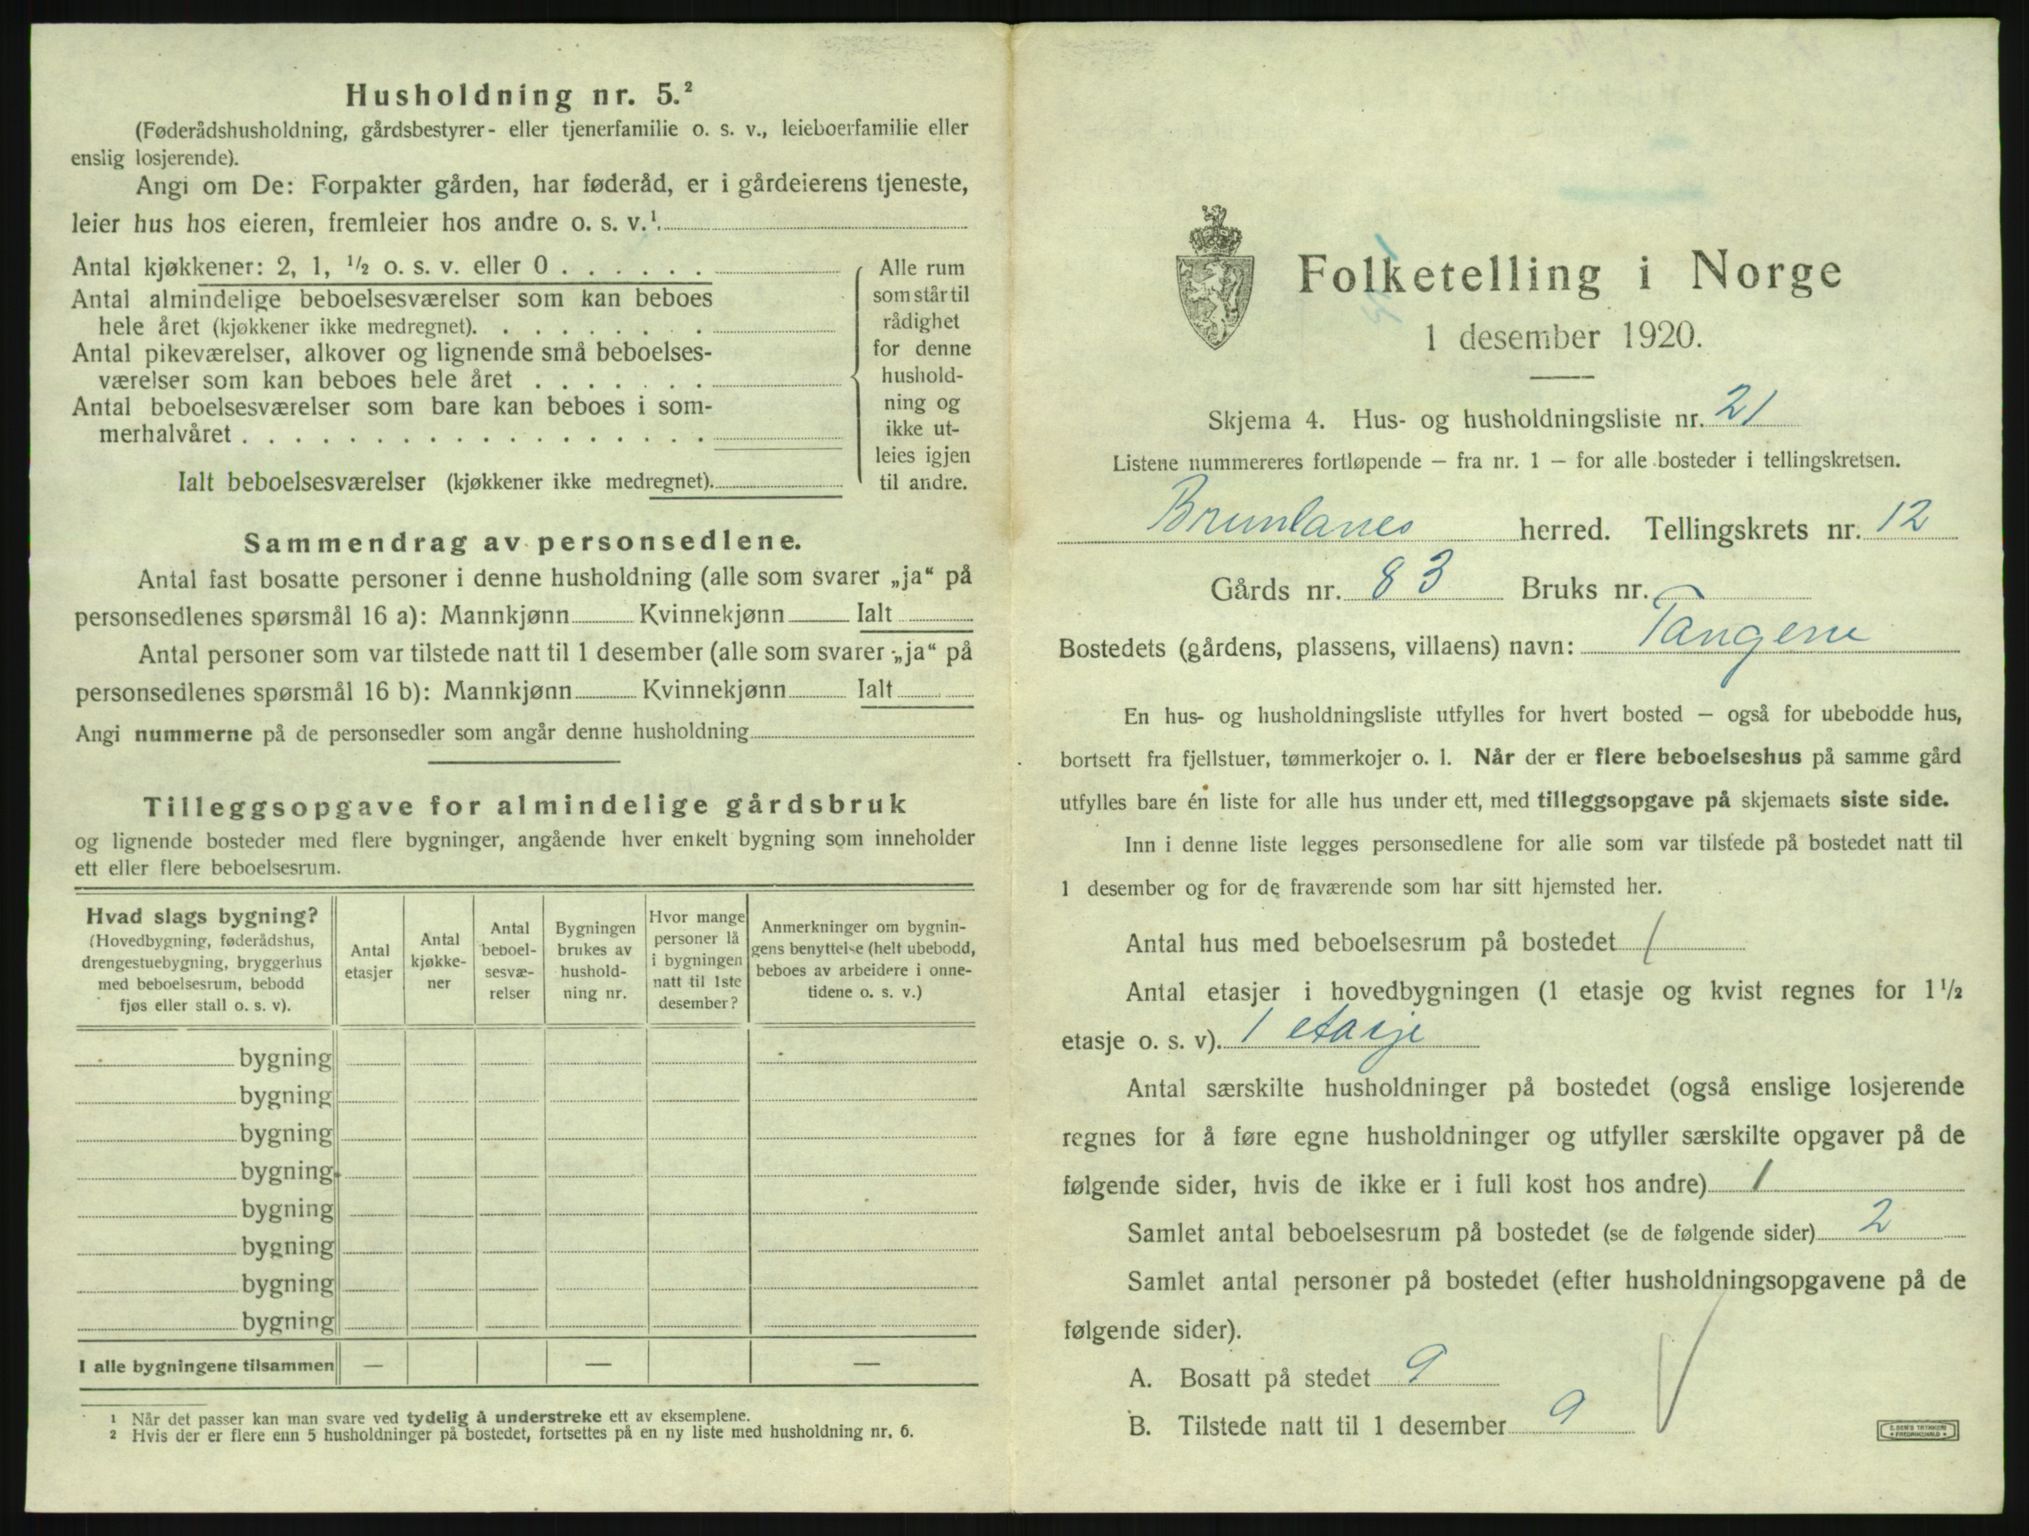 Husholdning nr. 5.²
(Føderådshusholdning, gårdsbestyrer- eller tjenerfamilie o. s. v., leieboerfamilie eller
enslig losjerende).
Angi om De: Forpakter gården, har føderåd, er i gårdeierens tjeneste,
leier hus hos eieren, fremleier hos andre o. s. v.¹.
Antal kjøkkener: 2, 1, ½ o. s. v. eller 0 . . . . . .
Antal almindelige beboelsesværelser som kan beboes
hele året (kjøkkener ikke medregnet). . . . . . . . .
Antal pikeværelser, alkover og lignende små beboelses-
værelser som kan beboes hele året . . . . . . .
Antal beboelsesværelser som bare kan beboes i som-
merhalvåret . . . . . . . . . . . . . . . . . .
Ialt beboelsesværelser (kjøkkener ikke medregnet).
Alle rum
som står til
rådighet
for denne
hushold-
ning og
ikke ut-
leies igjen
til andre.
Sammendrag av personsedlene.
Antal fast bosatte personer i denne husholdning (alle som svarer „ja“ på
personsedlenes spørsmål 16 a): Mannkjønn Kvinnekjønn Ialt
Antal personer som var tilstede natt til 1 desember (alle som svarer „ja“ på
personsedlenes spørsmål 16 b): Mannkjønn Kvinnekjønn Ialt
Angi nummerne på de personsedler som angår denne husholdning
Tilleggsopgave for almindelige gårdsbruk
og lignende bosteder med flere bygninger, angående hver enkelt bygning som inneholder
ett eller flere beboelsesrum.
Hvad slags bygning?
(Hovedbygning, føderådshus,
drengestuebygning, bryggerhus
med beboelsesrum, bebodd
fjøs eller stall o. s. v).
Antal
etasjer
Antal
kjøkke-
ner
Antal
beboel-
sesvæ-
relser
Bygningen
brukes av
hushold-
ning nr.
Hvor mange
personer lå
i bygningen
natt til 1ste
desember?
Anmerkninger om bygnin-
gens benyttelse (helt ubebodd,
beboes av arbeidere i onne-
tidene o. s. v.)
bygning
bygning
bygning
bygning
bygning
bygning
bygning
bygning
I alle bygningene tilsammen — — —
¹ Når det passer kan man svare ved tydelig å understreke ett av eksemplene.
² Hvis der er flere enn 5 husholdninger på bostedet, fortsettes på en ny liste med husholdning nr. 6.
Folketelling i Norge
1 desember 1920.
Skjema 4. Hus- og husholdningsliste nr. 21
Listene nummereres fortløpende – fra nr. 1 – for alle bosteder i tellingskretsen.
Brunlanes herred. Tellingskrets nr. 12
Gårds nr. 83 Bruks nr.
Bostedets (gårdens, plassens, villaens) navn: Tangene
En hus- og husholdningsliste utfylles for hvert bosted – også for ubebodde hus,
bortsett fra fjellstuer, tømmerkojer o. l. Når der er flere beboelseshus på samme gård
utfylles bare én liste for alle hus under ett, med tilleggsopgave på skjemaets siste side.
Inn i denne liste legges personsedlene for alle som var tilstede på bostedet natt til
1 desember og for de fraværende som har sitt hjemsted her.
Antal hus med beboelsesrum på bostedet 1
Antal etasjer i hovedbygningen (1 etasje og kvist regnes for 1½
etasje o. s. v). 1 etasje
Antal særskilte husholdninger på bostedet (også enslige losjerende
regnes for å føre egne husholdninger og utfyller særskilte opgaver på de
følgende sider, hvis de ikke er i full kost hos andre) 1
Samlet antal beboelsesrum på bostedet (se de følgende sider) 2
Samlet antal personer på bostedet (efter husholdningsopgavene på de
følgende sider).
A. Bosatt på stedet 9
B. Tilstede natt til 1 desember 9